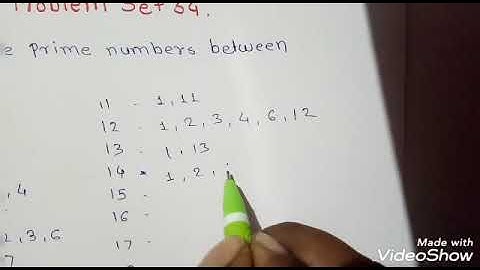 Problem Set 34.
e prime numbers between
11 - 1, 11
12 - 1, 2, 3, 4, 6, 12
13 - 1, 13
14 - 1, 2,
, 4
15 -
16 -
2, 3, 6
17 -
7
Made with
VideoShow